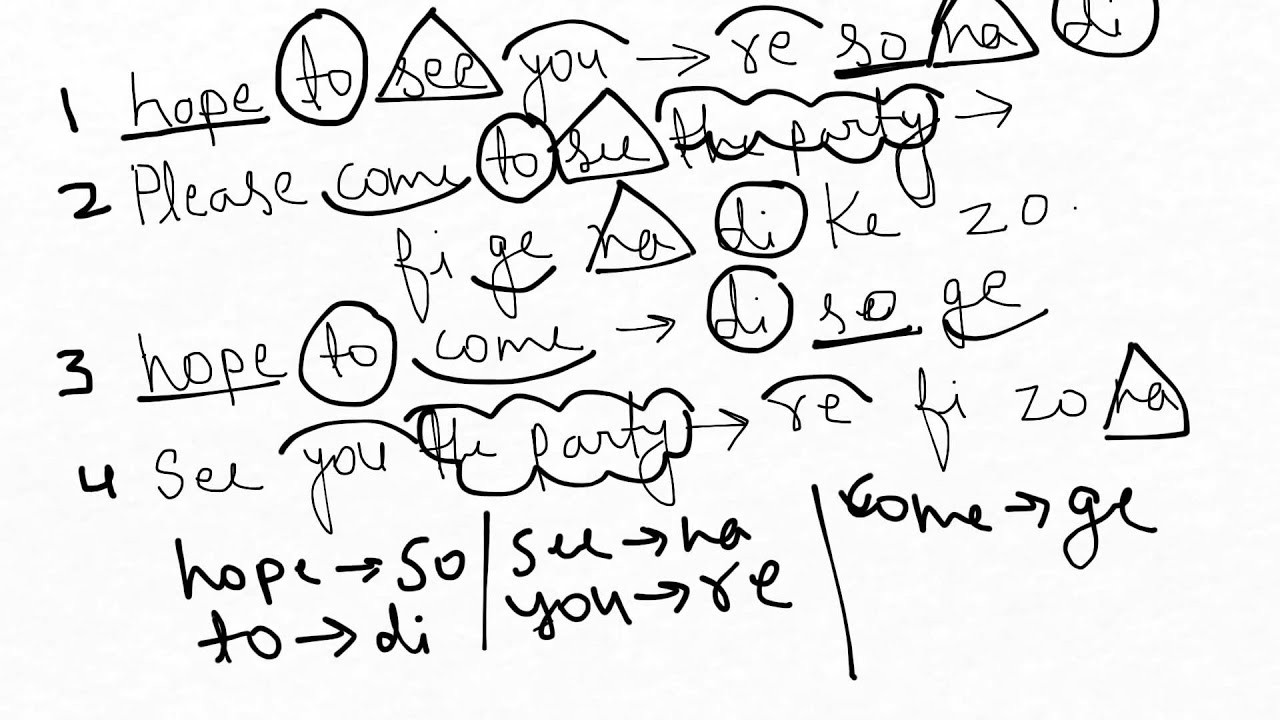 1 hope to see you → re so na di
2 Please come to see the party →
fi ge na di ke zo
3 hope to come → di so ge
4 See you the party → re fi zo na
hope → so see → na come → ge
to → di you → re